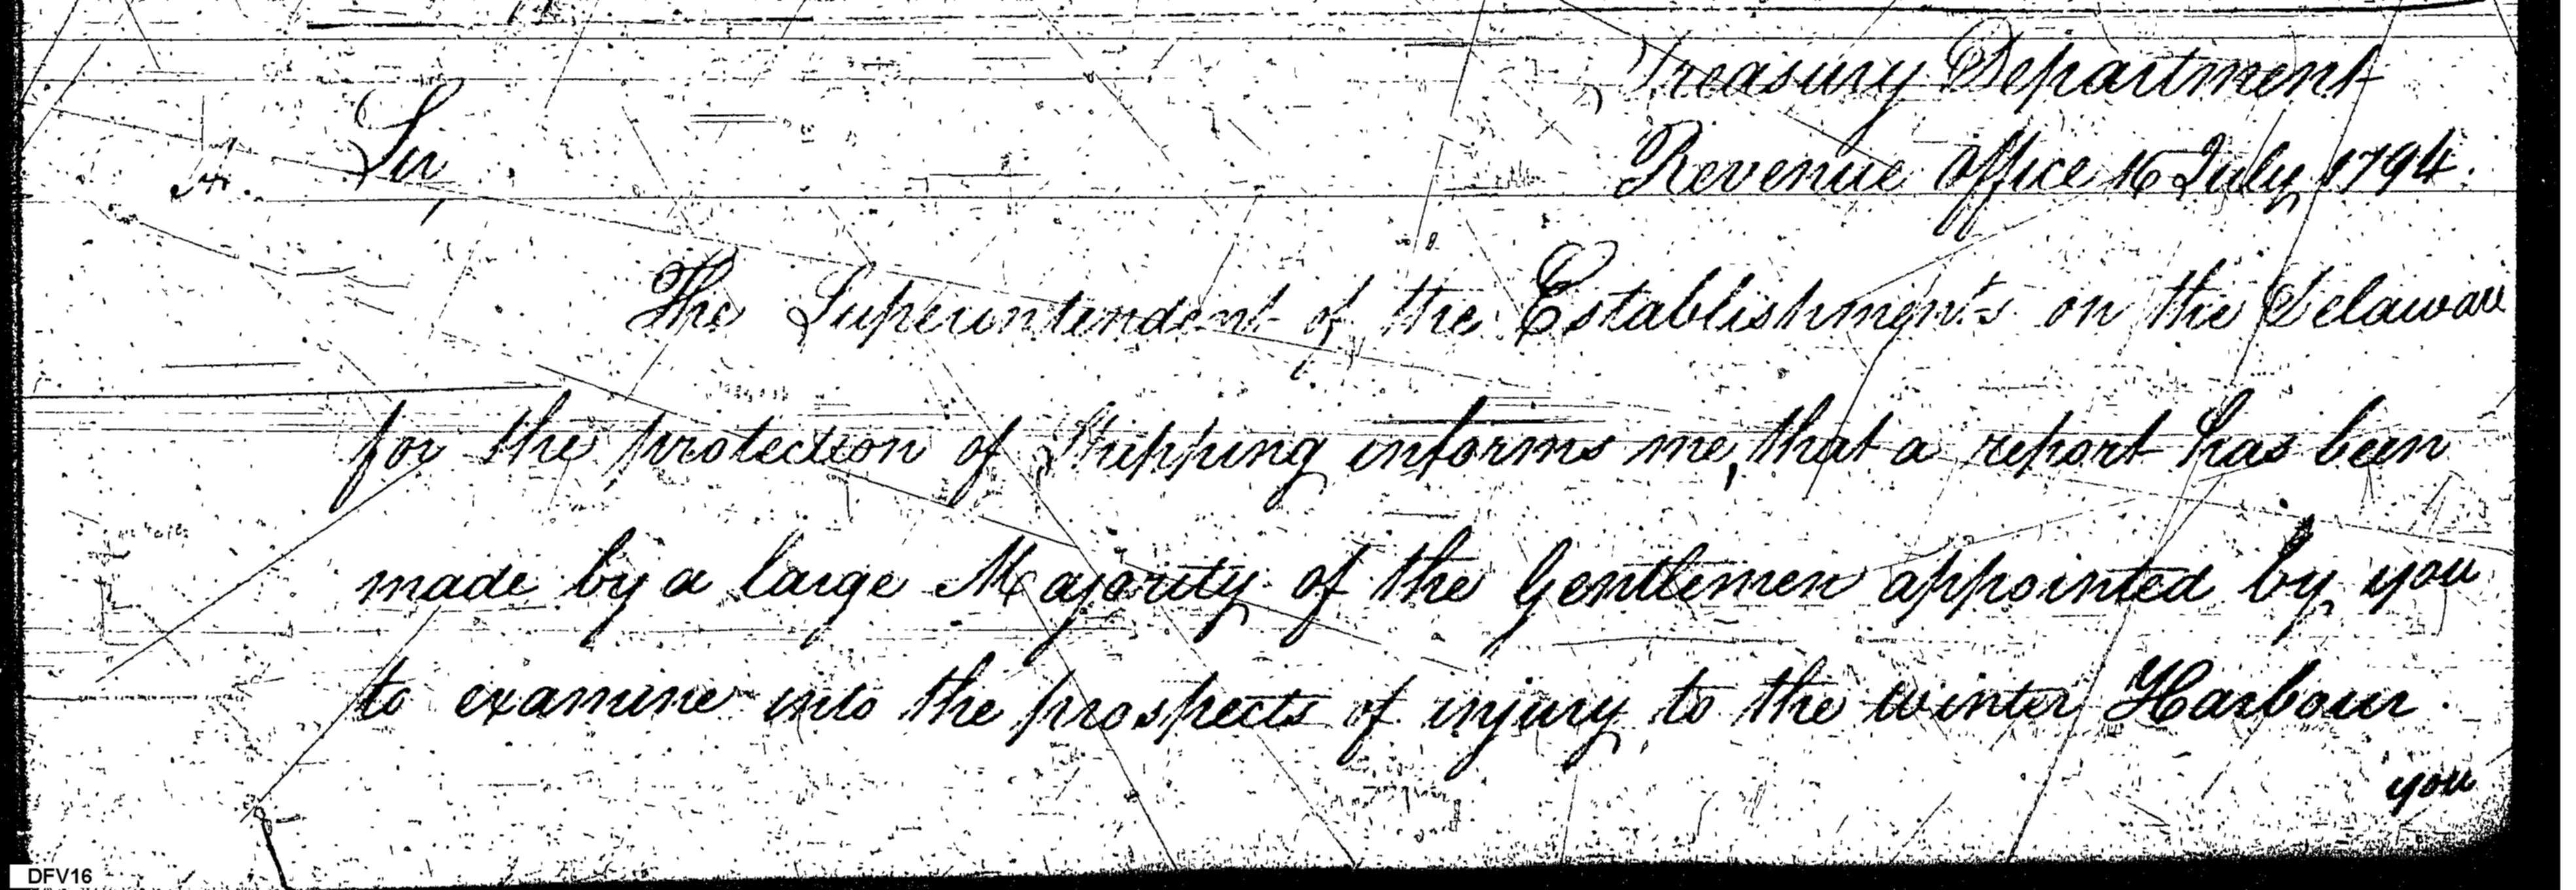 Treasury Department
Sir,
Revenue Office 16 July 1794.
The Superintendent of the Establishments on the Delaware
for the protection of Shipping informs me, that a report has been
made by a large Majority of the Gentlemen appointed by you
to examine into the prospects of injury to the winter Harbour
you
DFV16